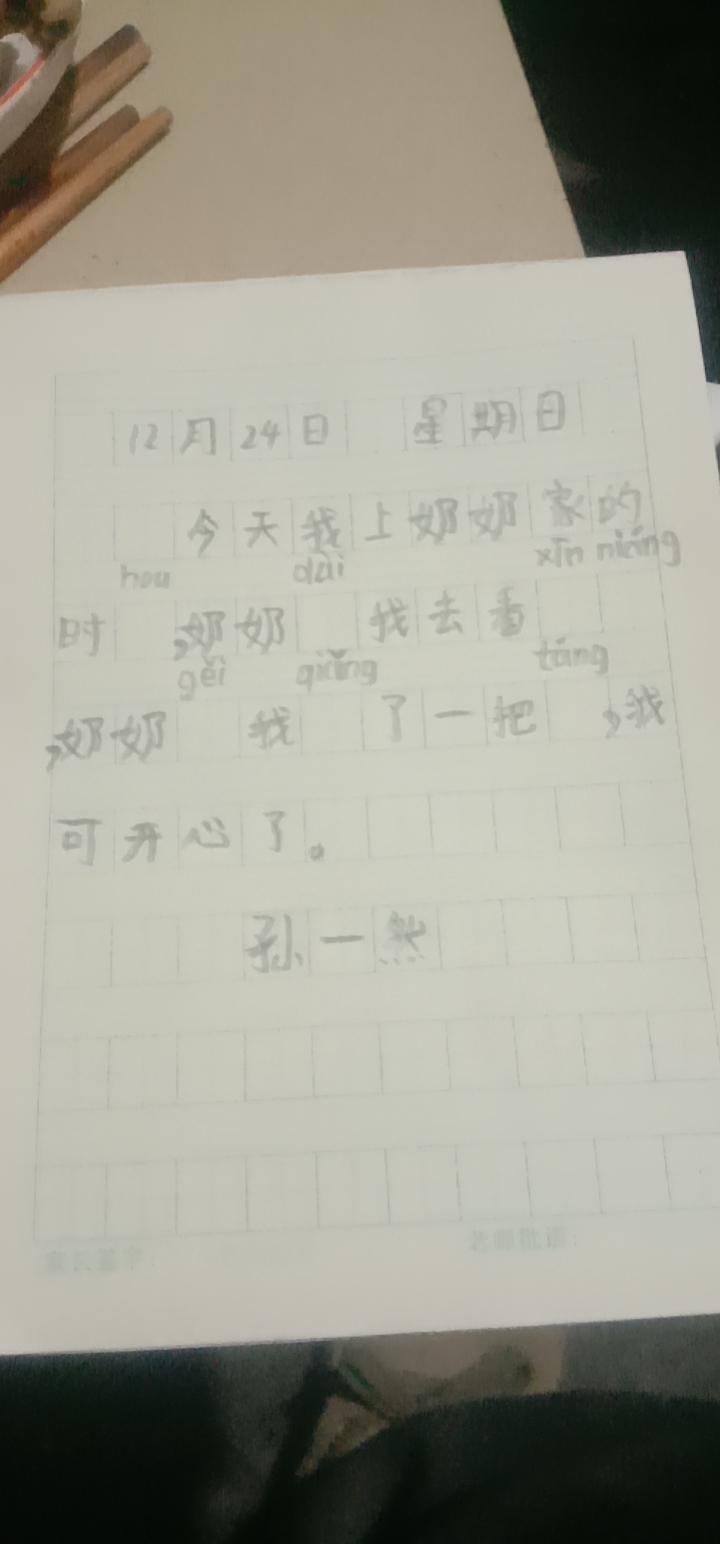 12月24日 星期日
今天我上奶奶家的
hou dài xīn niáng
时 ,奶奶 我去看
gěi qiǎng táng
,奶奶 我 了一把 ,我
可开心了。
孙一然
家长签字:
老师批语: